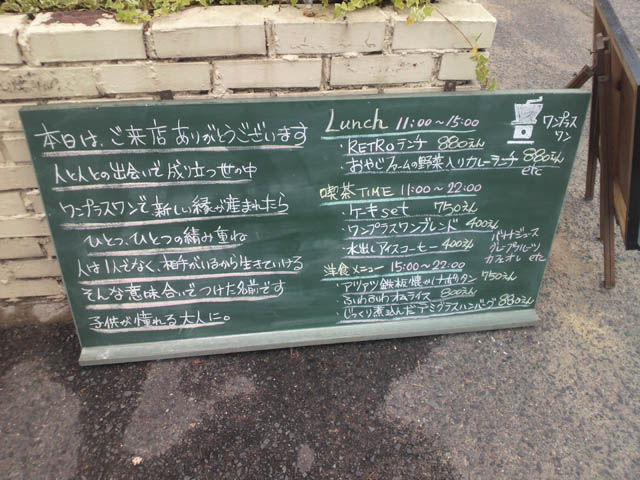 本日は、ご来店ありがとうございます
人と人との出会いで成り立つ世の中
ワンプラスワンで新しい縁が産まれたら
ひとつ、ひとつの積み重ね
人は1人でなく、相手がいるから生きていける
そんな意味合いでつけた名前です
子供が憧れる大人に。
Lunch 11:00～15:00
・RETROランチ 880えん
・おやじファームの野菜入りカレーランチ 880えん
etc
喫茶TIME 11:00～22:00
・ケーキset 750えん
・ワンプラスワンブレンド 400えん
・水出しアイスコーヒー 400えん
バナナジュース
グレープフルーツ
カフェオレ etc
洋食メニュー 15:00～22:00
・アツアツ鉄板焼かナポリタン 750えん
・ふわふわオムライス 800えん
・じっくり煮込んだデミグラスハンバーグ 880えん
ワンプラス
ワン